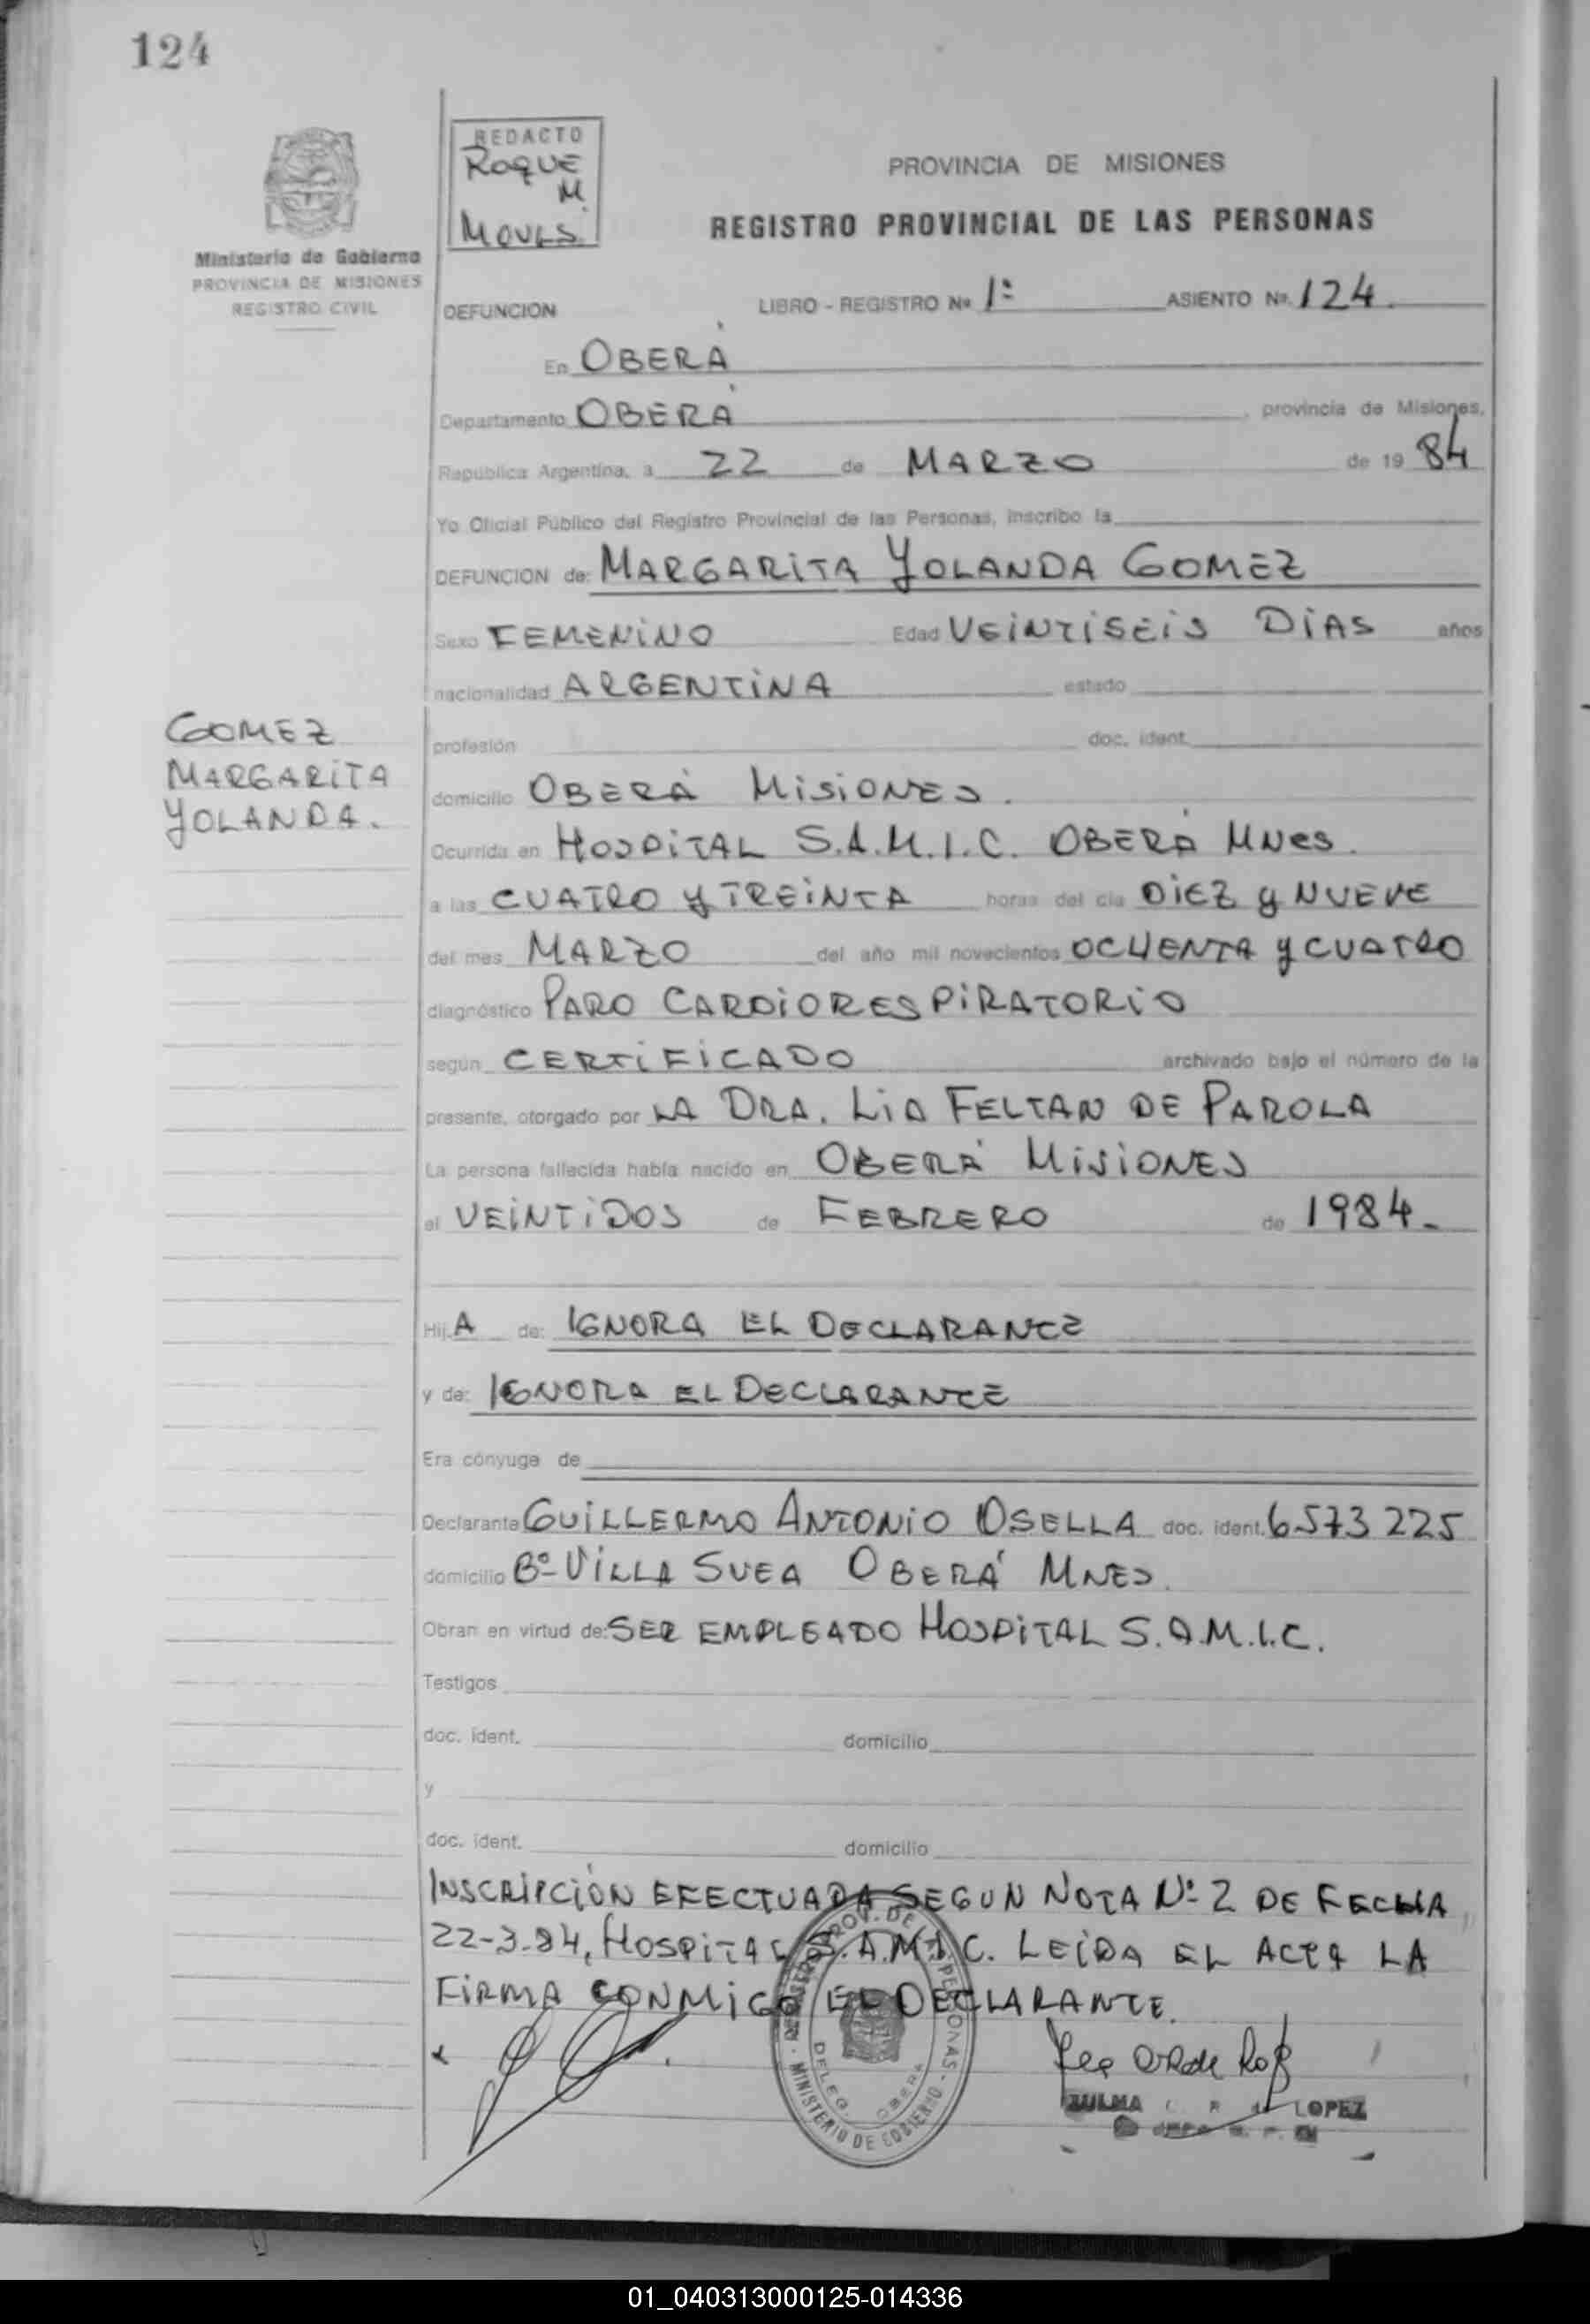 124
REDACTO
ROQUE
M.
MOVES
PROVINCIA DE MISIONES
REGISTRO PROVINCIAL DE LAS PERSONAS
Ministerio de Gobierno
PROVINCIA DE MISIONES
REGISTRO CIVIL
DEFUNCION LIBRO - REGISTRO Nº 1º ASIENTO Nº 124.
En OBERÁ
Departamento OBERÁ, provincia de Misiones,
República Argentina, a 22 de MARZO de 19 84
Yo Oficial Público del Registro Provincial de las Personas, inscribo la
DEFUNCION de: MARGARITA YOLANDA GOMEZ
Sexo FEMENINO Edad VEINTISEIS DIAS años
nacionalidad ARGENTINA estado
GOMEZ
MARGARITA
YOLANDA.
profesión doc. ident.
domicilio OBERÁ MISIONES.
Ocurrida en HOSPITAL S.A.M.I.C. OBERÁ MNES.
a las CUATRO Y TREINTA horas del día DIEZ Y NUEVE
del mes MARZO del año mil novecientos OCHENTA Y CUATRO
diagnóstico PARO CARDIORESPIRATORIO
según CERTIFICADO archivado bajo el número de la
presente, otorgado por LA DRA. LIA FELTAN DE PAROLA
La persona fallecida había nacido en OBERÁ MISIONES
el VEINTIDOS de FEBRERO de 1984.
Hij A de: IGNORA EL DECLARANTE
y de: IGNORA EL DECLARANTE
Era cónyuge de
Declarante GUILLERMO ANTONIO OSELLA doc. ident. 6573225
domicilio Bº VILLA SVEA OBERÁ MNES.
Obran en virtud de: SER EMPLEADO HOSPITAL S.A.M.I.C.
Testigos
doc. ident. domicilio
y
doc. ident. domicilio
INSCRIPCIÓN EFECTUADA SEGUN NOTA Nº 2 DE FECHA
22-3-84, HOSPITAL S.A.M.I.C. LEIDA EL ACTA LA
FIRMA CONMIGO EL DECLARANTE.
REGISTRO PROV. DE LAS PERSONAS - MINISTERIO DE GOBIERNO -
DELEG. OBERA
ZULMA C. R. de LOPEZ
01_040313000125-014336